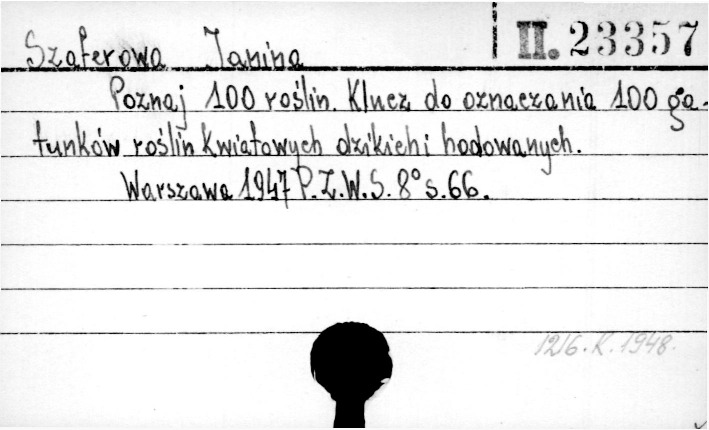 Szaferowa Janina II. 23357
Poznaj 100 roślin. Klucz do oznaczania 100 ga-
tunków roślin kwiatowych dzikich i hodowanych.
Warszawa 1947 P.Z.W.S. 8° s. 66.
1216. K. 1948.